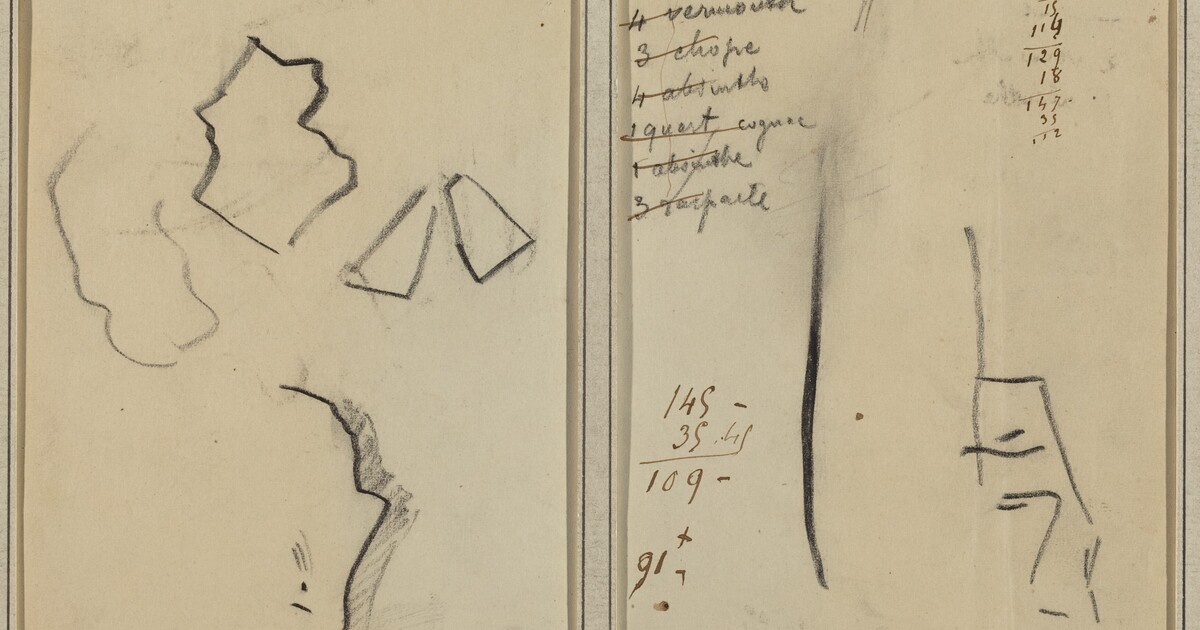 4 vermouth
3 chope
4 absinthe
1 quart cognac
1 absinthe
3
15
114
129
18
147
35
112
145 -
35.45
109 -
91